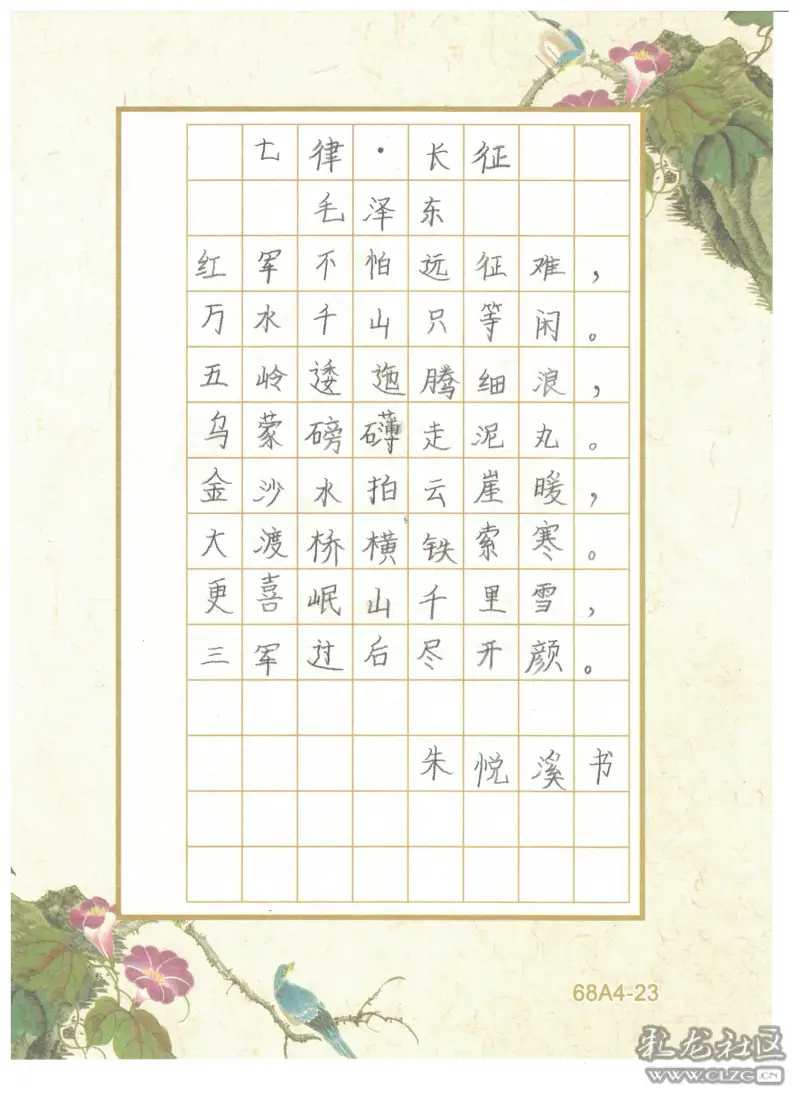 七律·长征
毛泽东
红军不怕远征难，
万水千山只等闲。
五岭逶迤腾细浪，
乌蒙磅礴走泥丸。
金沙水拍云崖暖，
大渡桥横铁索寒。
更喜岷山千里雪，
三军过后尽开颜。
朱悦溪书
68A4-23
彩龙社区
WWW.CLZG.CN